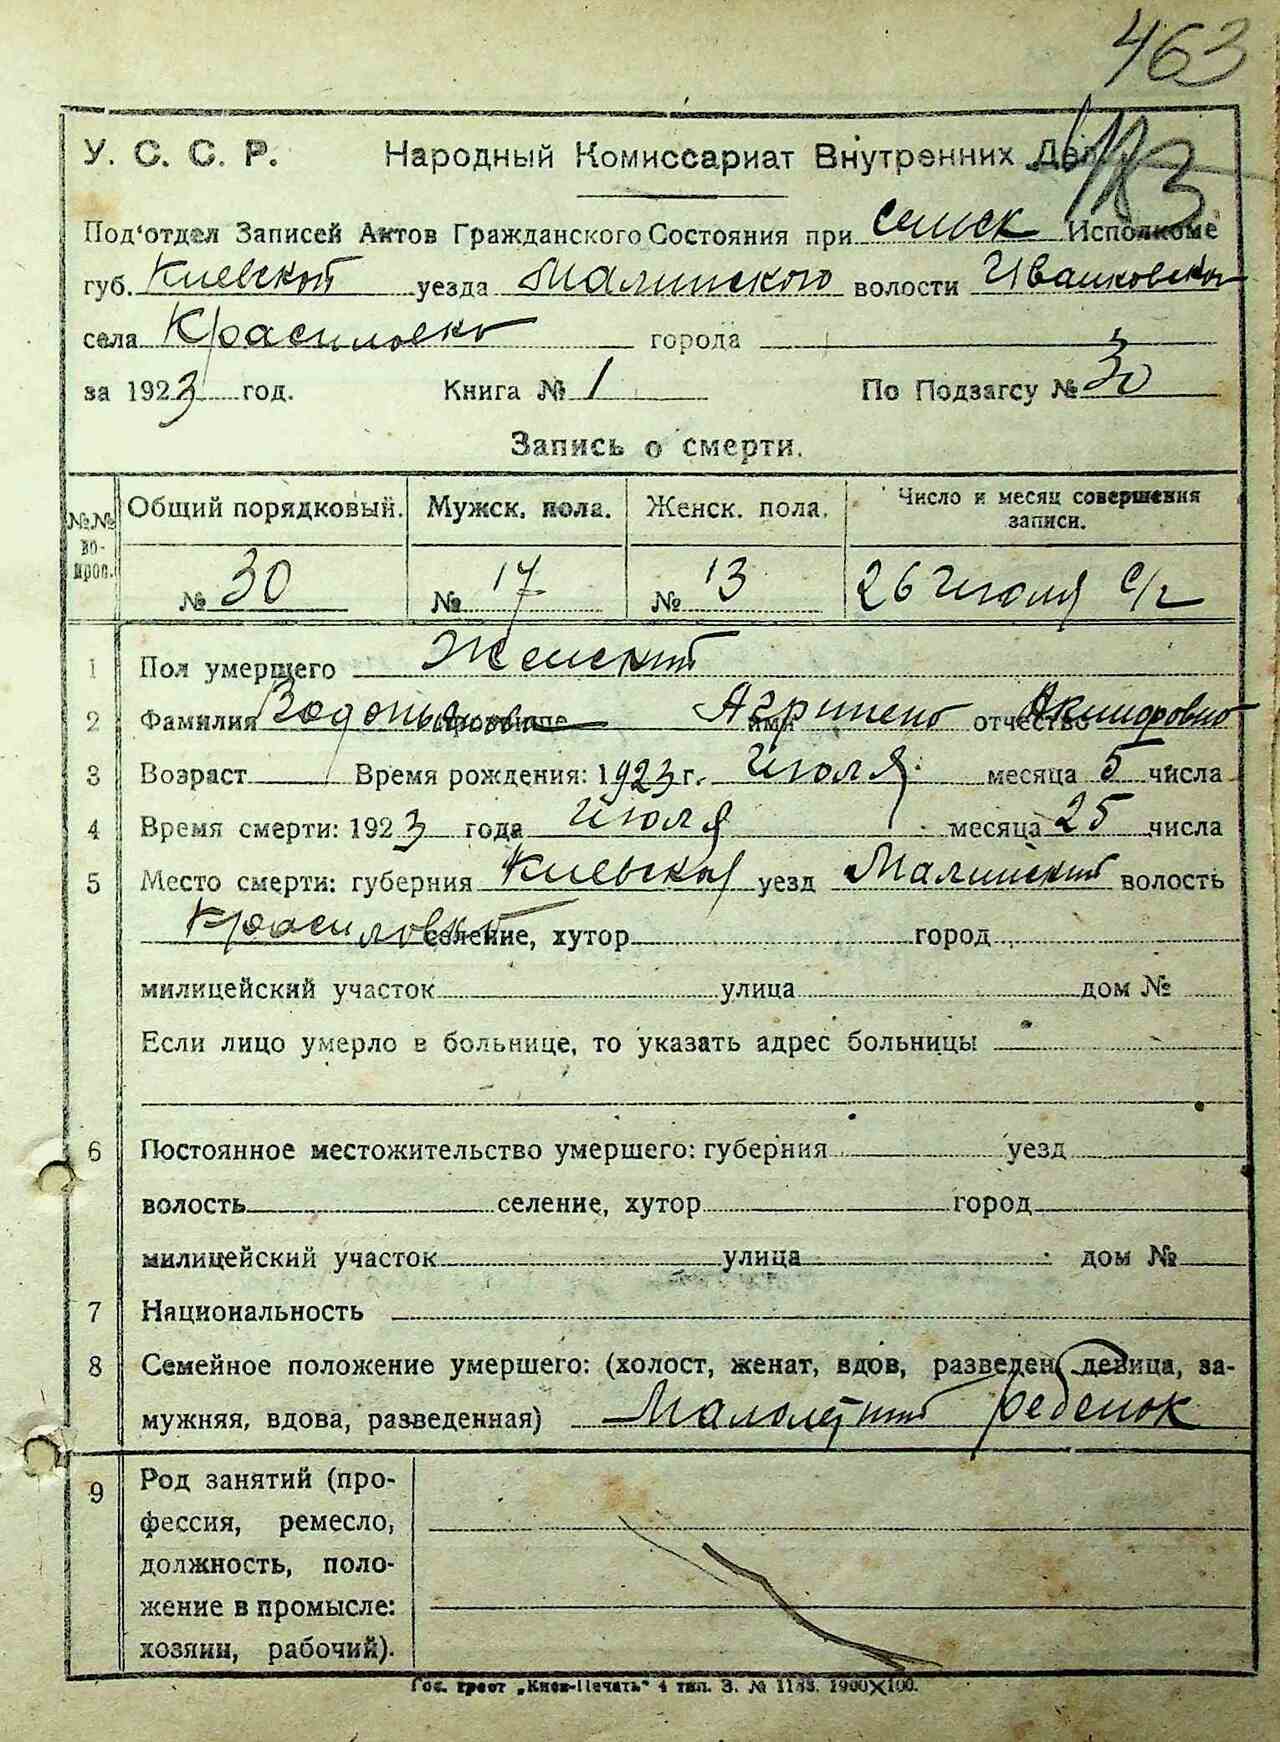 463
113
У. С. С. Р. Народный Комиссариат Внутренних Дел
Под'отдел Записей Актов Гражданского Состояния при сельск Исполкоме
губ. Киевской уезда Малинского волости Иванковской
села Красиловка города
за 1923 год. Книга № 1 По Подзагсу № 30
Запись о смерти.
№№ вопров. Общий порядковый. Мужск. пола. Женск. пола. Число и месяц совершения записи.
№ 30 № 17 № 13 26 Июля с/г
1 Пол умершего Женский
2 Фамилия прозвище Агрипено имя отчество
3 Возраст Время рождения: 1923 г. Июля месяца 5 числа
4 Время смерти: 1923 года Июля месяца 25 числа
5 Место смерти: губерния Киевская уезд Малинский волость
Красиловка селение, хутор город
милицейский участок улица дом №
Если лицо умерло в больнице, то указать адрес больницы
6 Постоянное местожительство умершего: губерния уезд
волость селение, хутор город
милицейский участок улица дом №
7 Национальность
8 Семейное положение умершего: (холост, женат, вдов, разведен, девица, за-
мужняя, вдова, разведенная) Малолетний ребенок
9 Род занятий (про-
фессия, ремесло,
должность, поло-
жение в промысле:
хозяин, рабочий).
Гос. трест „Киев-Печать" 4 тип. З. № 1188. 1900X100.